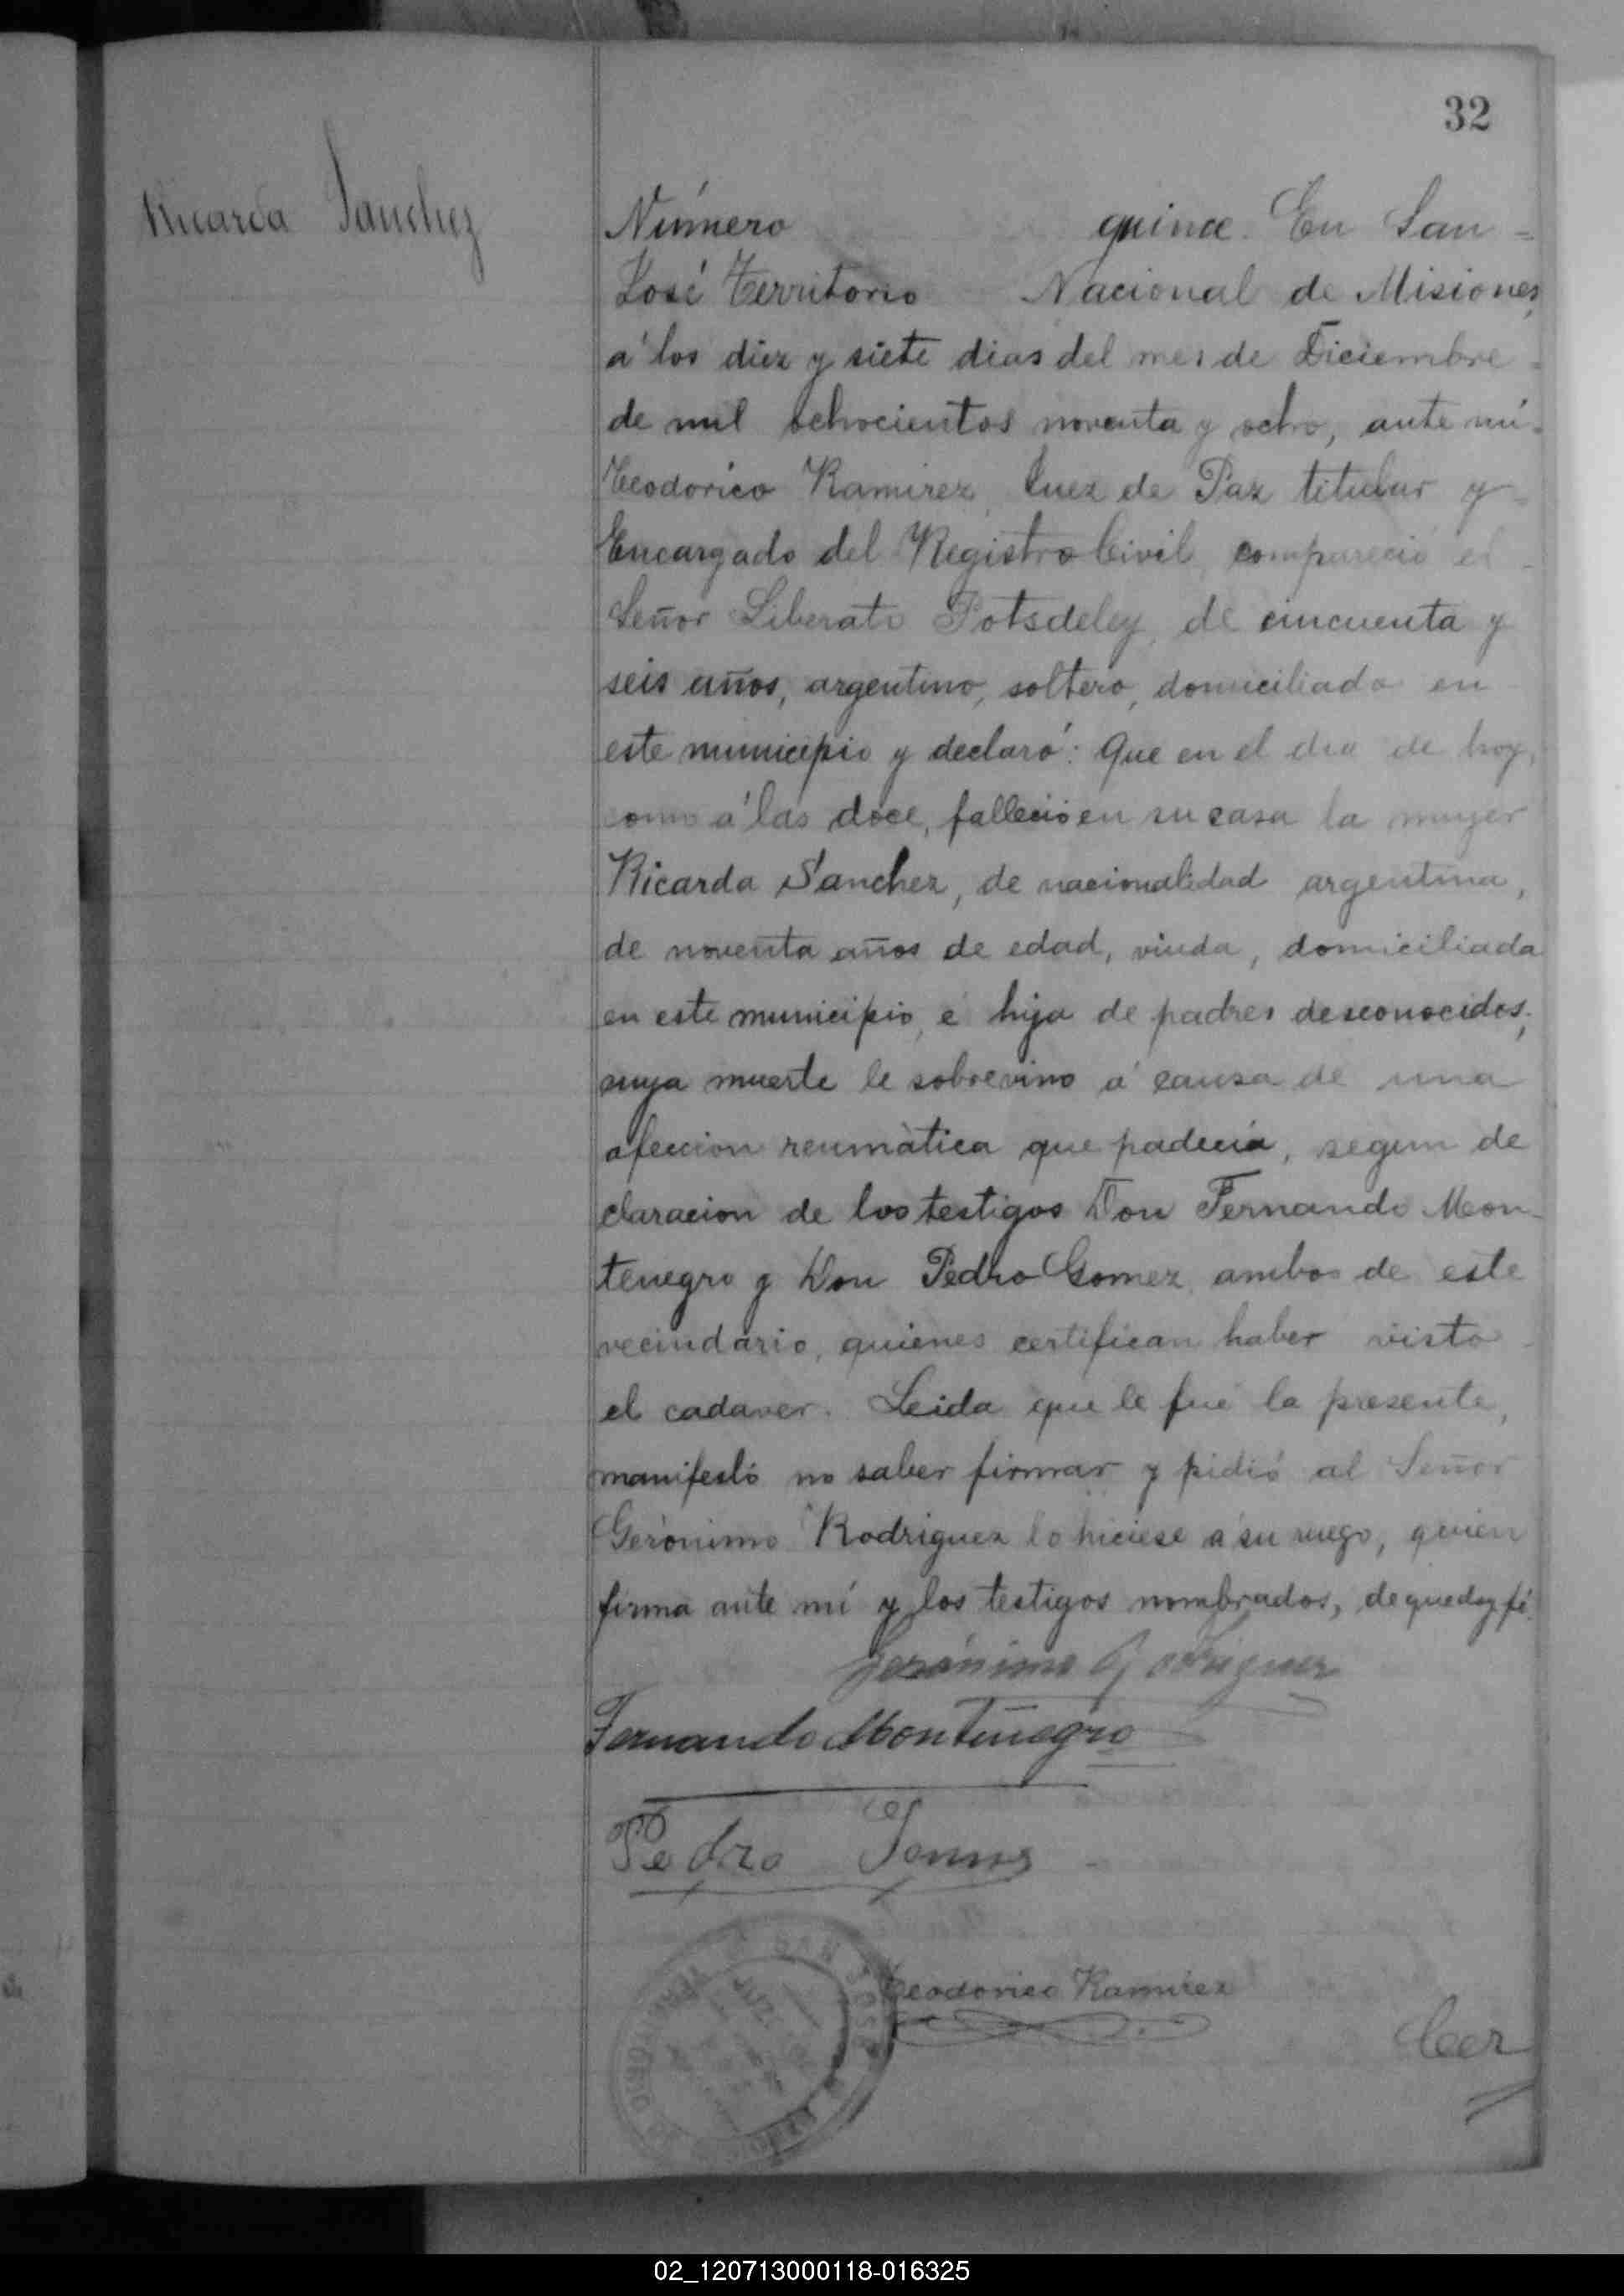 32
Ricarda Sanchez
Número quince. En San=
José Territorio Nacional de Misiones,
á los diez y siete dias del mes de Diciembre=
de mil ochocientos noventa y ocho, ante mí=
Teodorico Ramirez, Juez de Paz titular y=
Encargado del Registro Civil, compareció el
Señor Liberato Potsdeley, de cincuenta y
seis años, argentino, soltero, domiciliado en
este municipio y declaró: Que en el dia de hoy,
como á las doce, falleció en su casa la mujer
Ricarda Sanchez, de nacionalidad argentina,
de noventa años de edad, viuda, domiciliada
en este municipio, é hija de padres desconocidos;
cuya muerte le sobrevino á causa de una
afeccion reumática que padecía, segun de
claracion de los testigos Don Fernando Mon-
tenegro y Don Pedro Gomez, ambos de este
vecindario, quienes certifican haber visto
el cadaver. Leida que le fué la presente,
manifestó no saber firmar y pidió al Señor
Gerónimo Rodriguez lo hiciese á su ruego, quien
firma ante mí y los testigos nombrados, de que doy fé.
Gerónimo Rodriguez
Fernando Montenegro
Pedro Gomes
Teodorico Ramirez
SAN JOSÉ
TERRITORIO
02_120713000118-016325